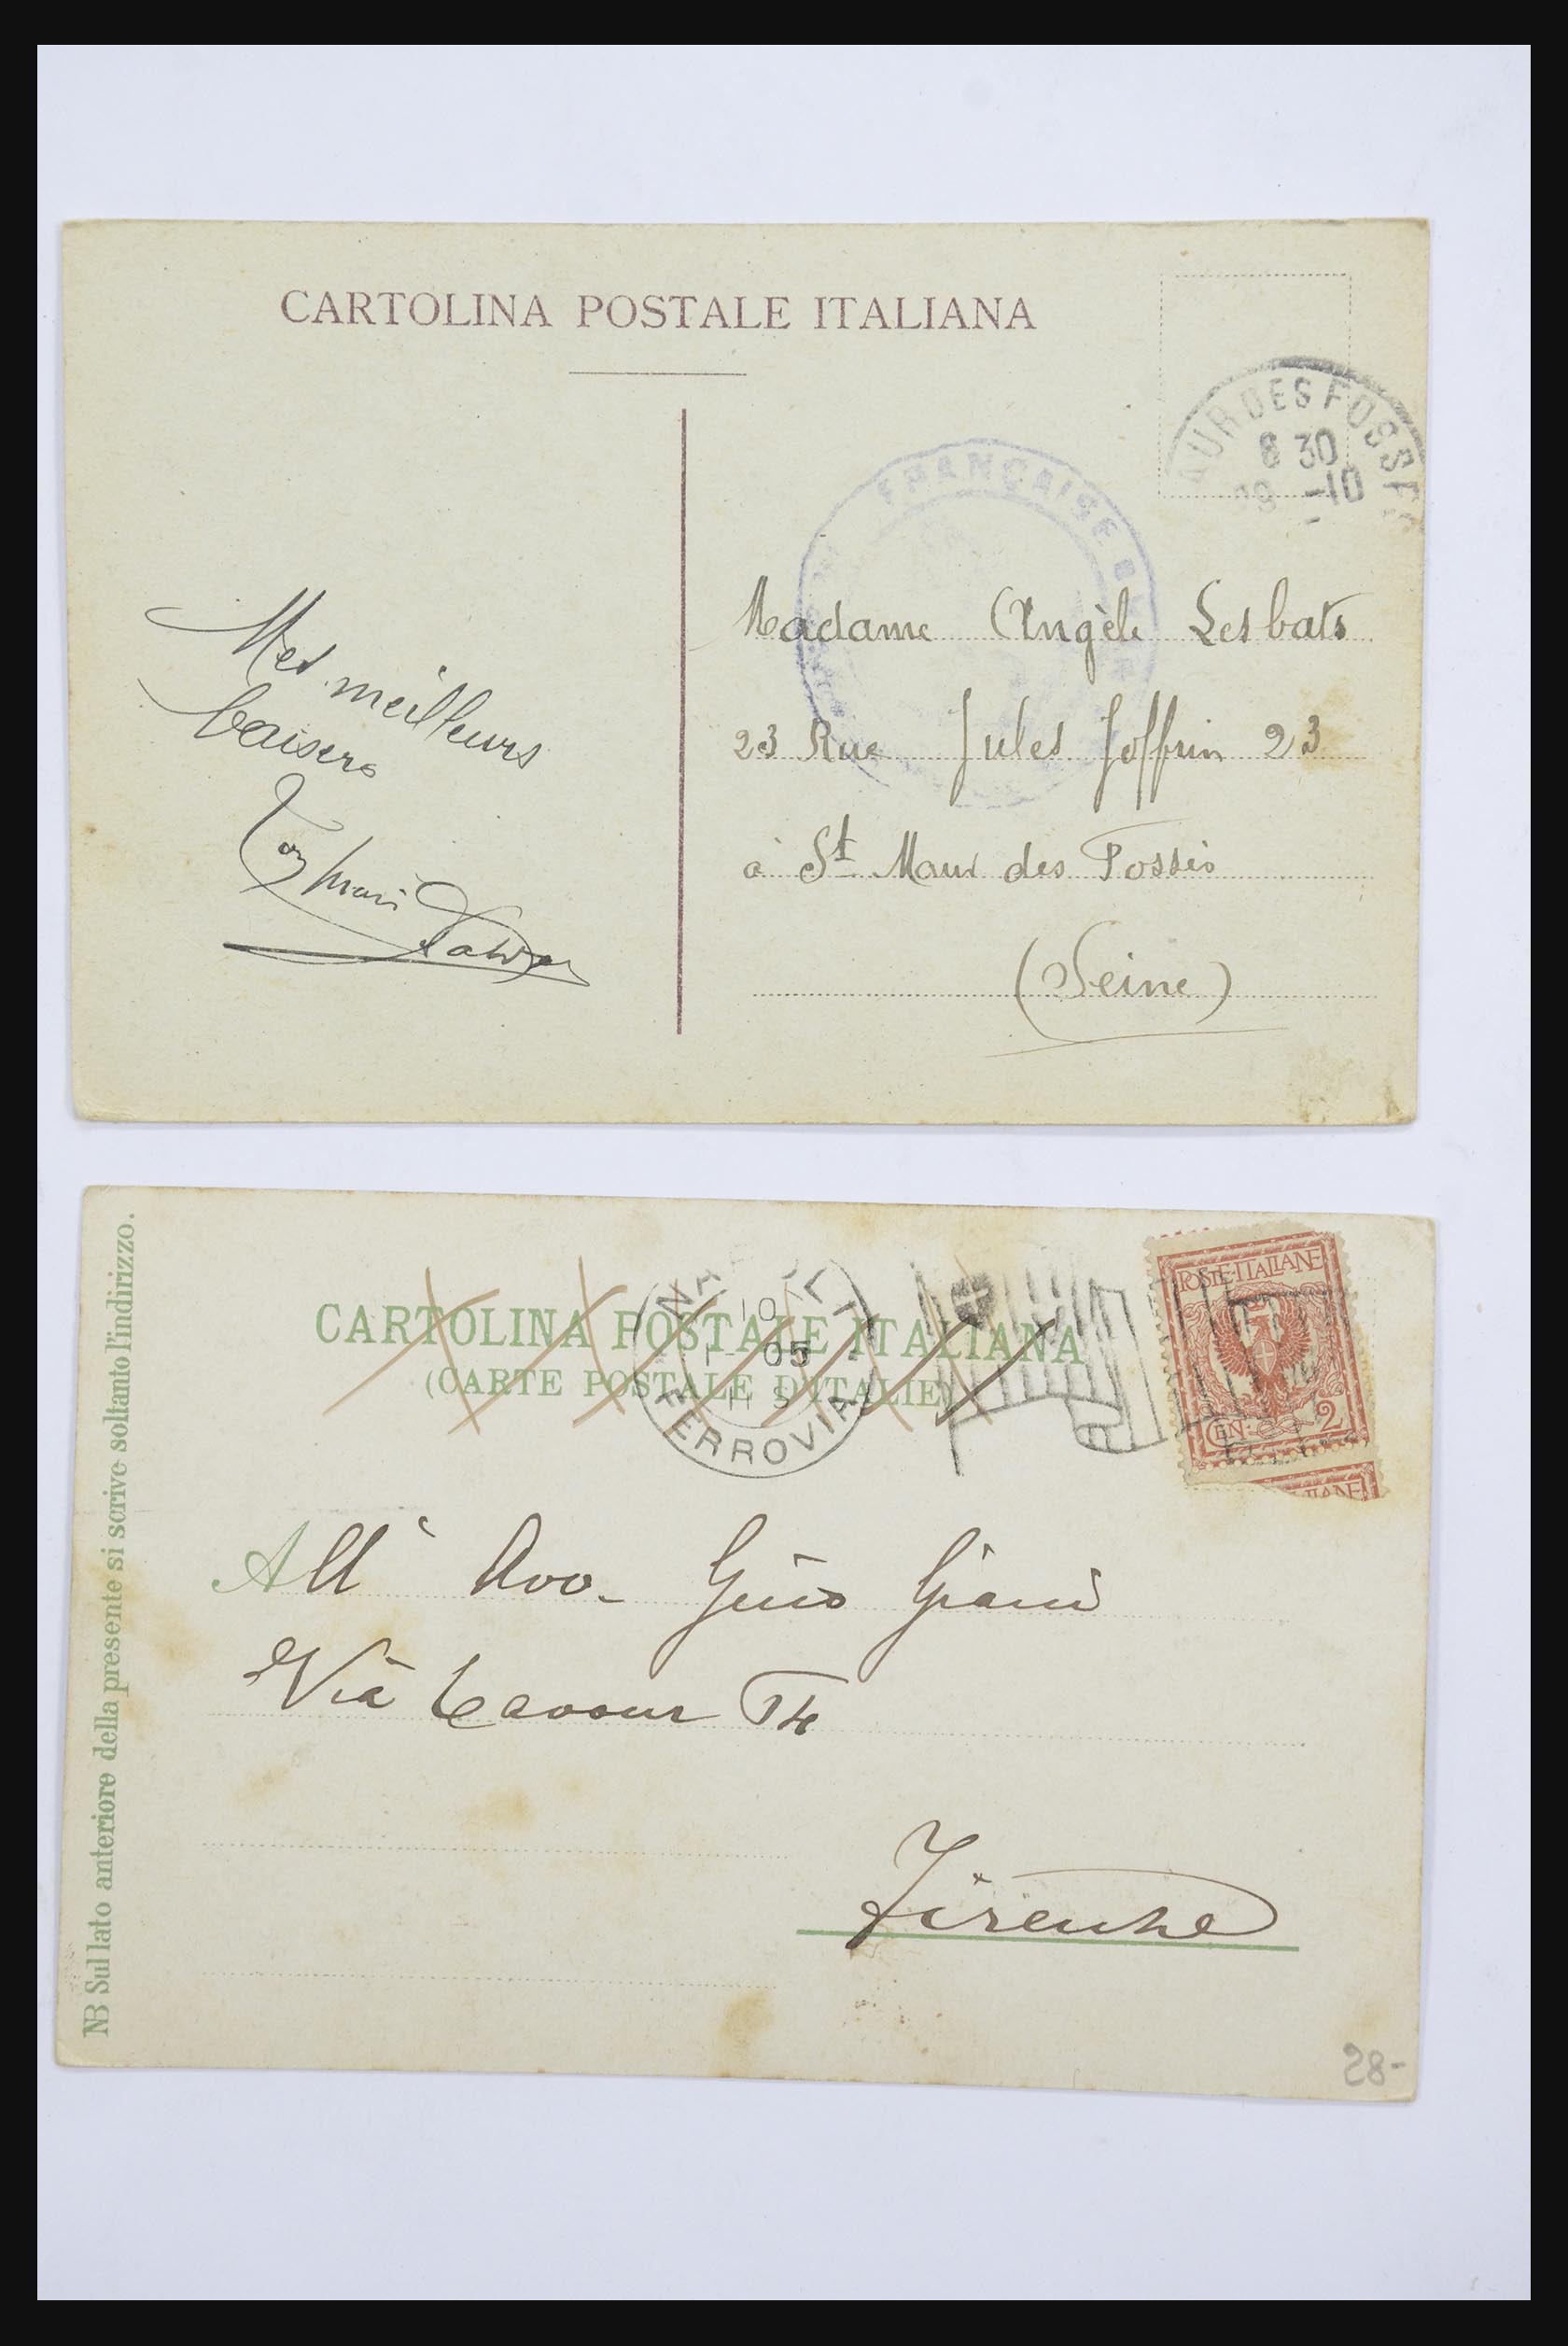 CARTOLINA POSTALE ITALIANA
AUR DES FOSSES
8 30
-10
FRANÇAISE
Mes meilleurs
baisers
Ton mari
Madame Angèle Lesbats
23 Rue Jules Joffrin 23
à St Maur des Fossés
(Seine)
NB Sul lato anteriore della presente si scrive soltanto l'indirizzo.
CARTOLINA POSTALE ITALIANA
(CARTE POSTALE D'ITALIE)
10
05
FERROVIA
POSTE·ITALIANE
CEN: 2
LIANE
All' Avv. Gino Giani
Via Cavour 14
Firenze
28-